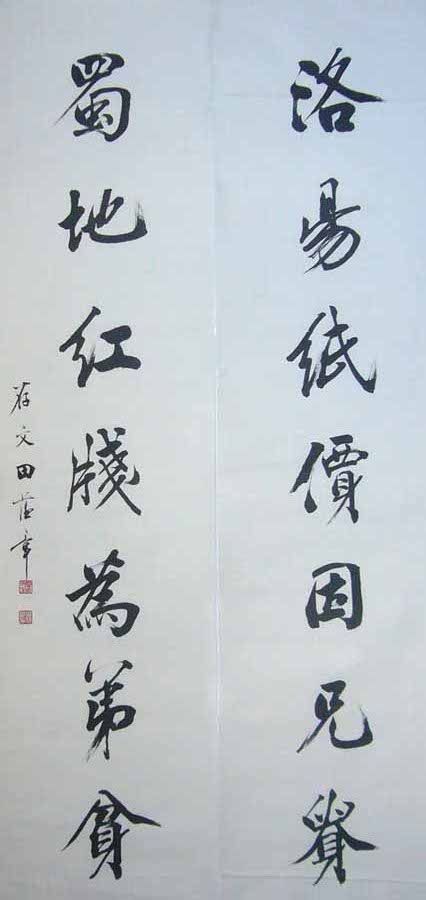 洛昜紙價因兄貴
蜀地紅牋為弟貧
文田蘊章